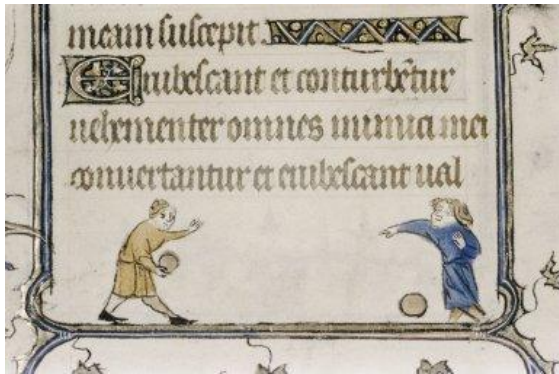 meam suscepit.
Erubescant et conturbētur
uehementer omnes inimici mei
conuertantur et erubescant ual